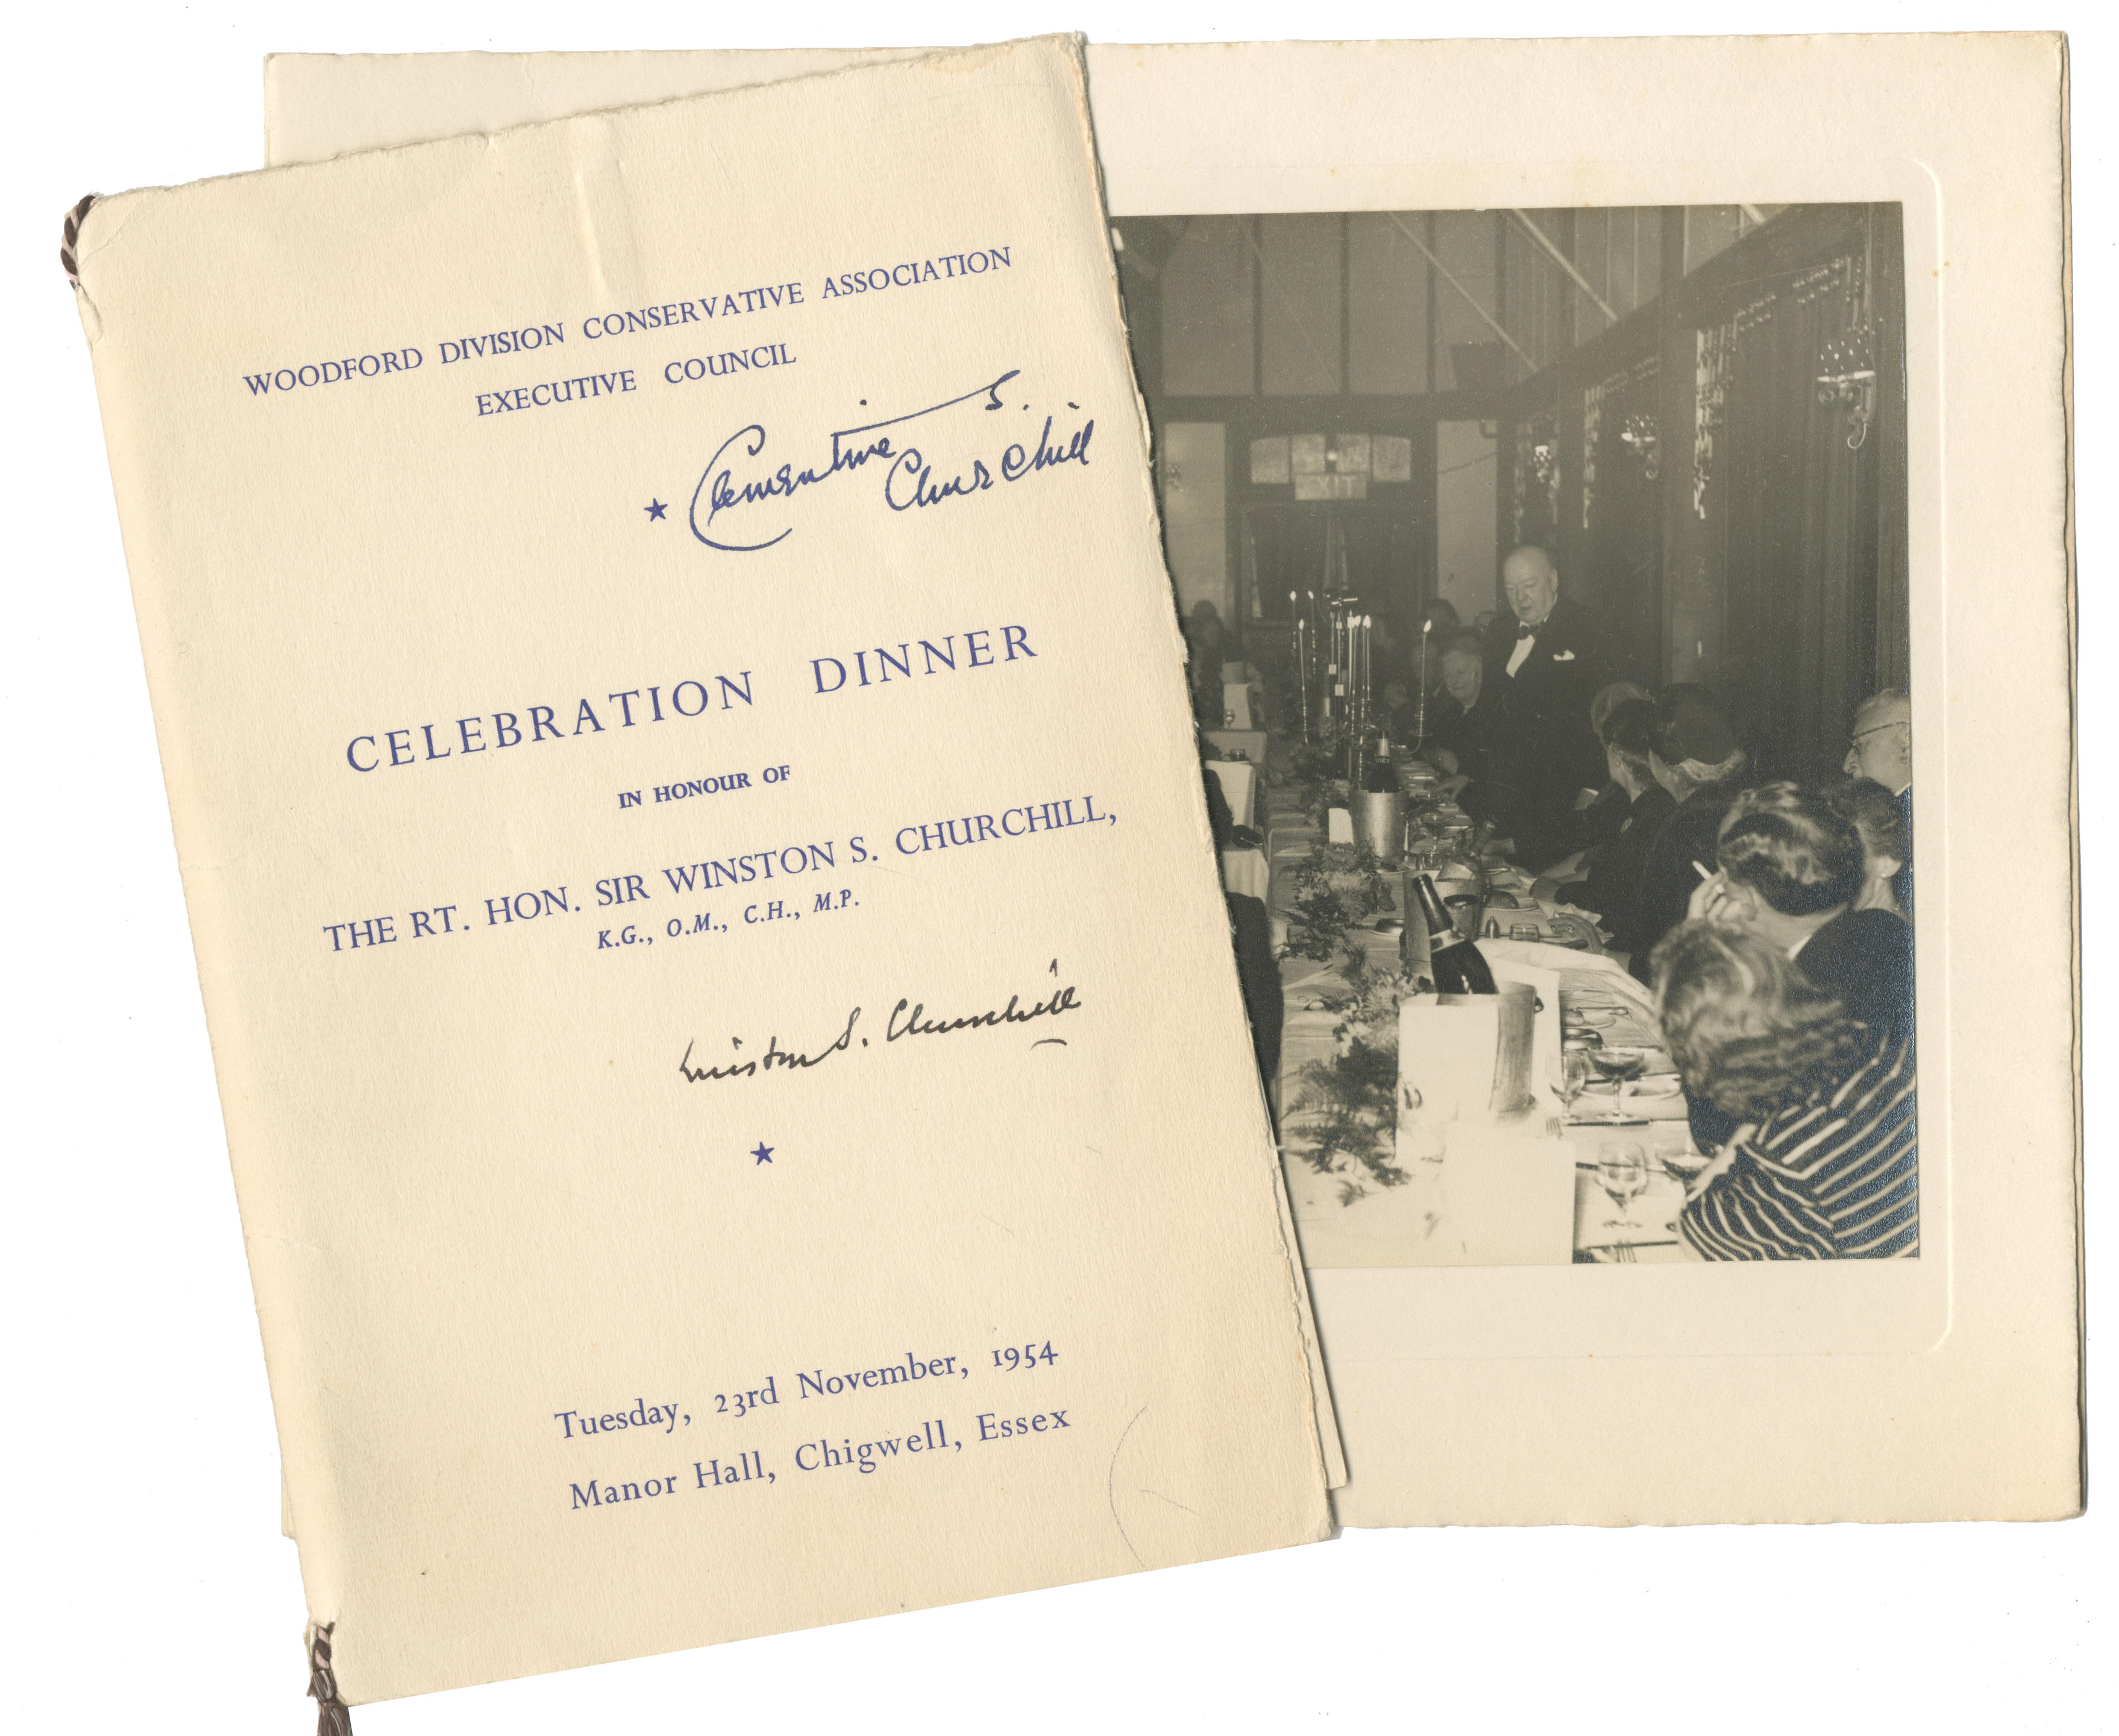 WOODFORD DIVISION CONSERVATIVE ASSOCIATION
EXECUTIVE COUNCIL
Clementine S.
Churchill
CELEBRATION DINNER
IN HONOUR OF
THE RT. HON. SIR WINSTON S. CHURCHILL,
K.G., O.M., C.H., M.P.
Winston S. Churchill
Tuesday, 23rd November, 1954
Manor Hall, Chigwell, Essex
EXIT